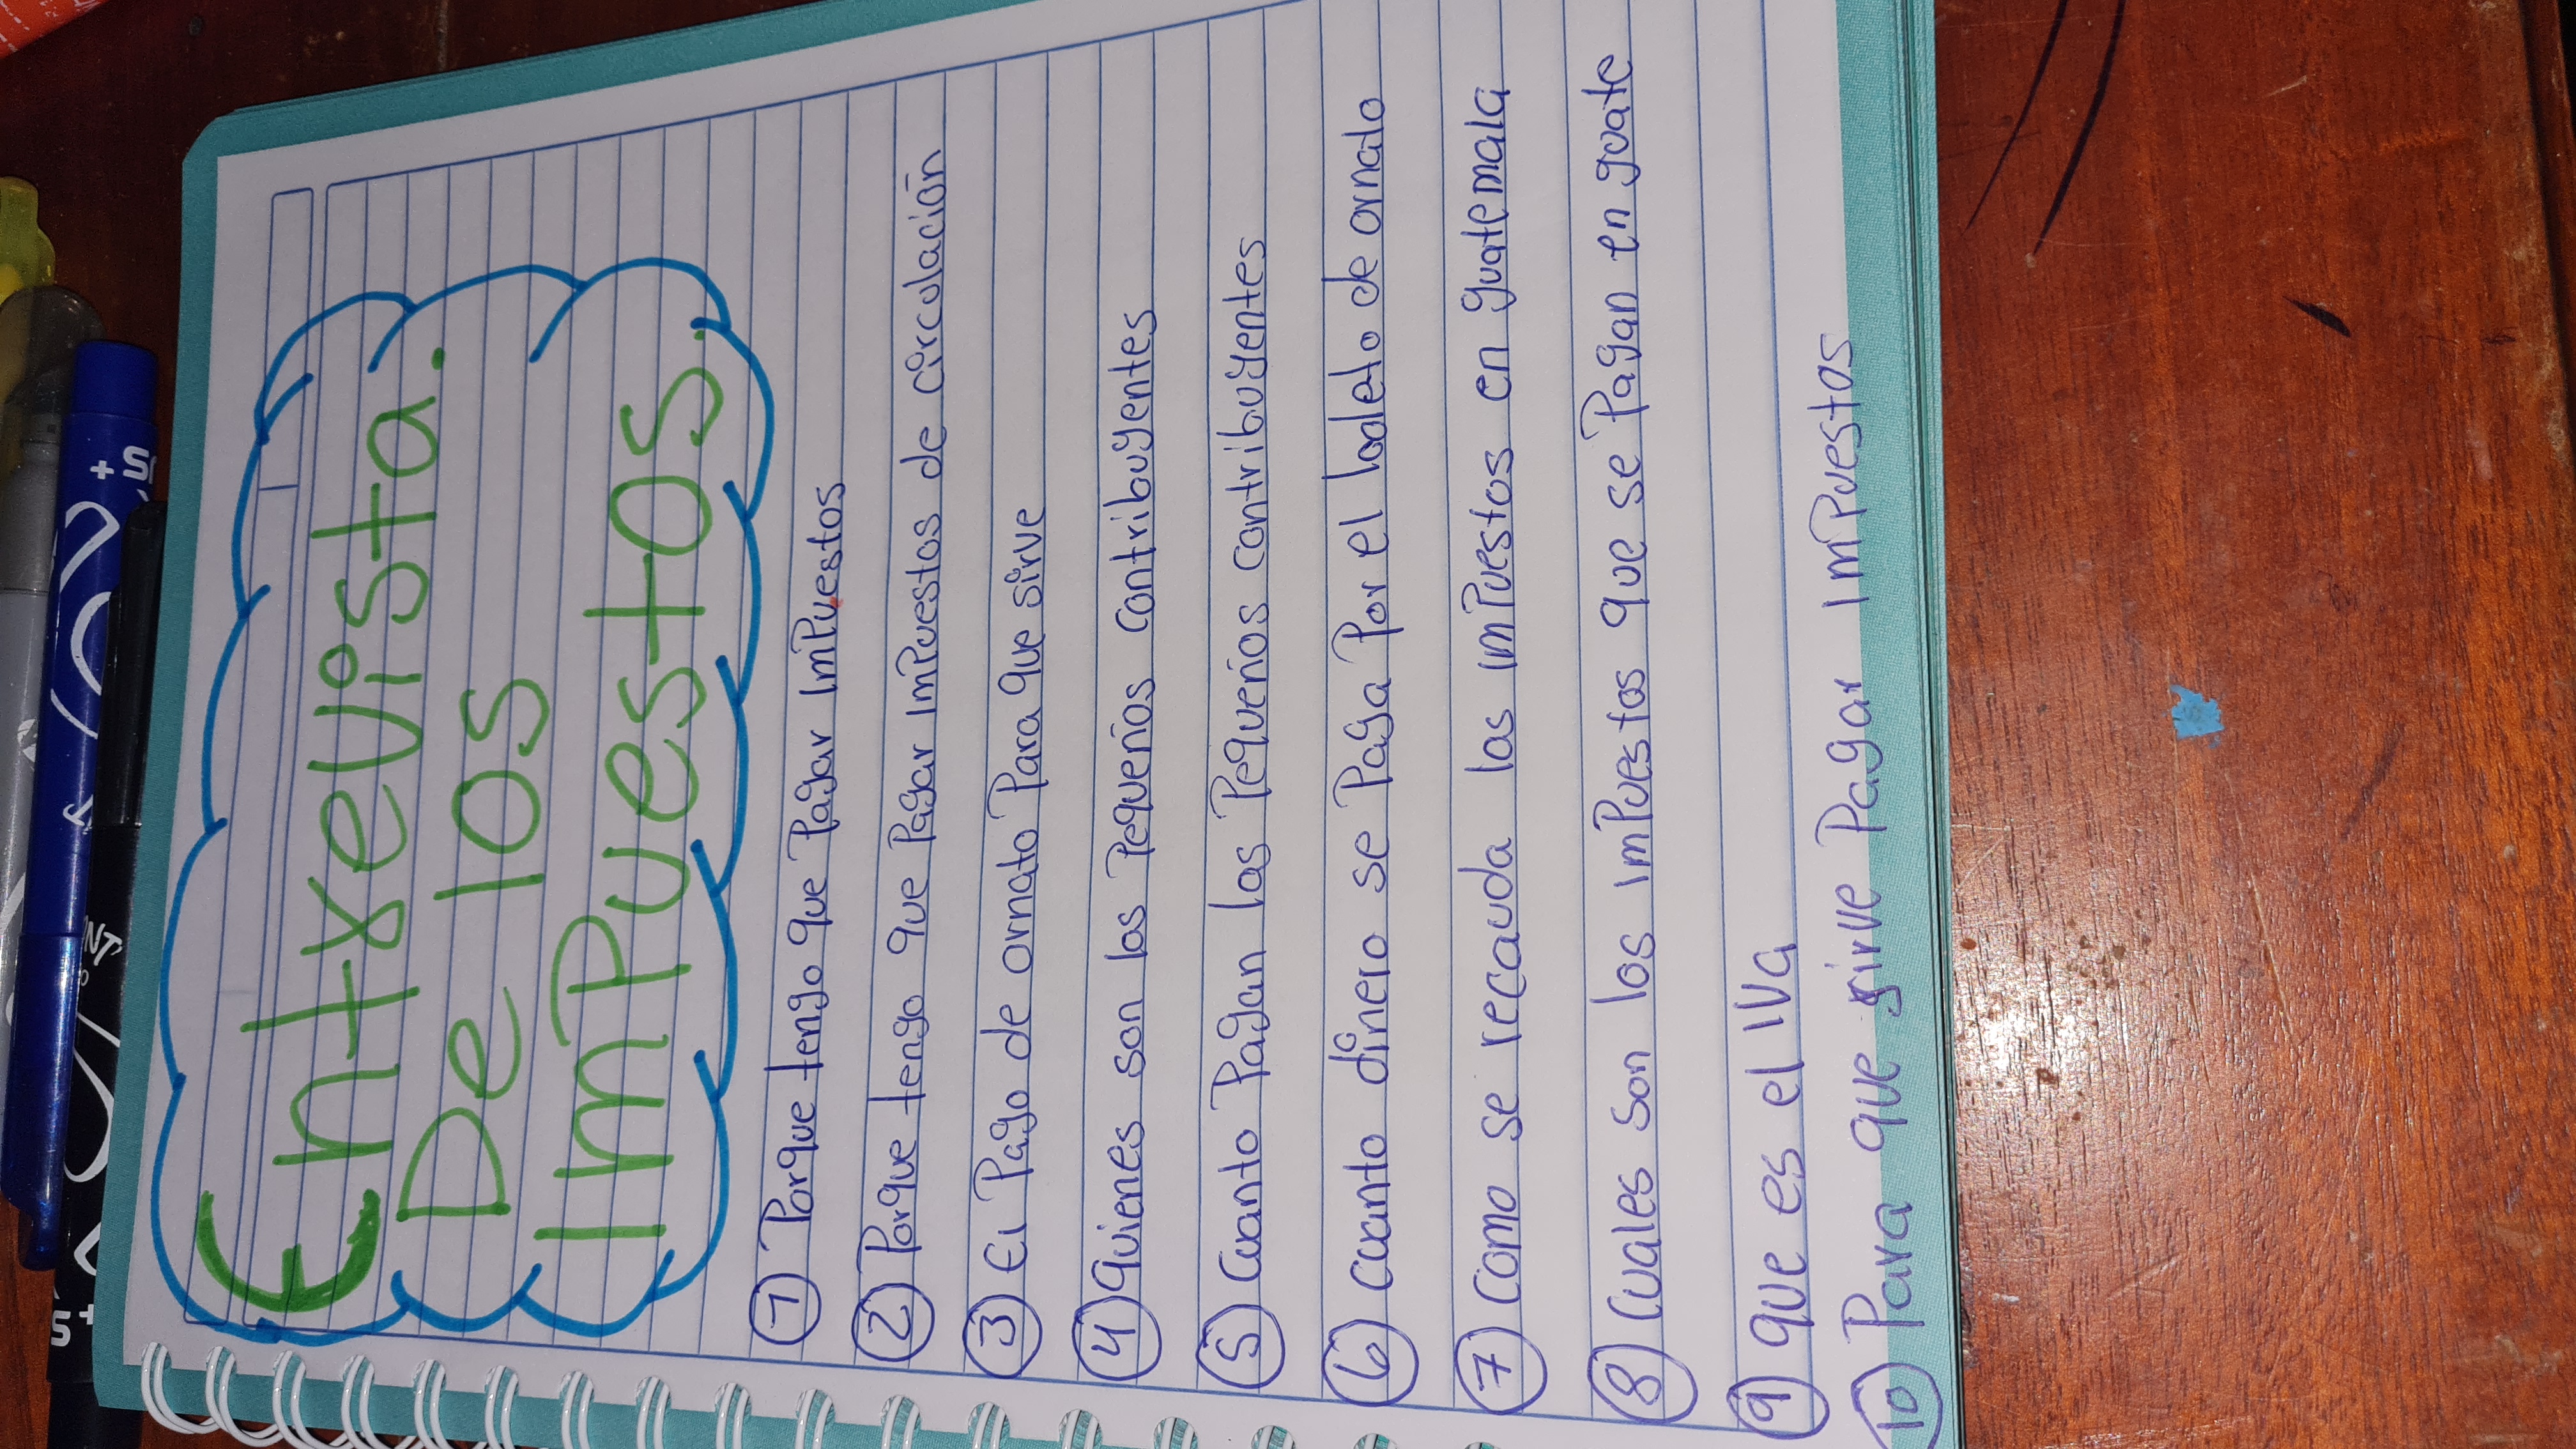 Entrevista.
De los
ImPuestos.
1 Porque tengo que Pagar ImPuestos
2 Porque tengo que Pagar ImPuestos de circulación
3 El Pago de ornato Para que sirve
4 quienes son los Pequeños contribuyentes
5 Cuanto Pagan los Pequeños contribuyentes
6 cuanto dinero se Paga Por el boleto de ornato
7 Como se recauda los imPuestos en guatemala
8 Cuales son los imPuestos que se Pagan en guate
9 que es el IVa
10 Para que sirve Pagar ImPuestos